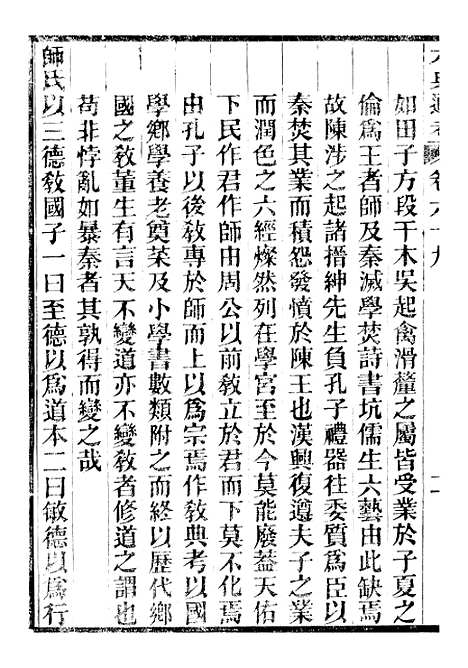 六十九
如田子方段干木吳起禽滑釐之屬皆受業於子夏之
倫爲王者師及秦滅學焚詩書坑儒生六藝由此缺焉
故陳涉之起諸搢紳先生負孔子禮器往委質爲臣以
秦焚其業而積怨發憤於陳王也漢興復遵夫子之業
而潤色之六經燦然列在學宮至於今莫能廢蓋天佑
下民作君作師由周公以前敎立於君而下莫不化焉
由孔子以後敎專於師而上以爲宗焉作敎典考以國
學鄉學養老奠菜及小學書數類附之而終以歷代鄉
國之敎董生有言天不變道亦不變敎者修道之謂也
苟非悖亂如暴秦者其孰得而變之哉
師氏以三德敎國子一曰至德以爲道本二曰敏德以爲行